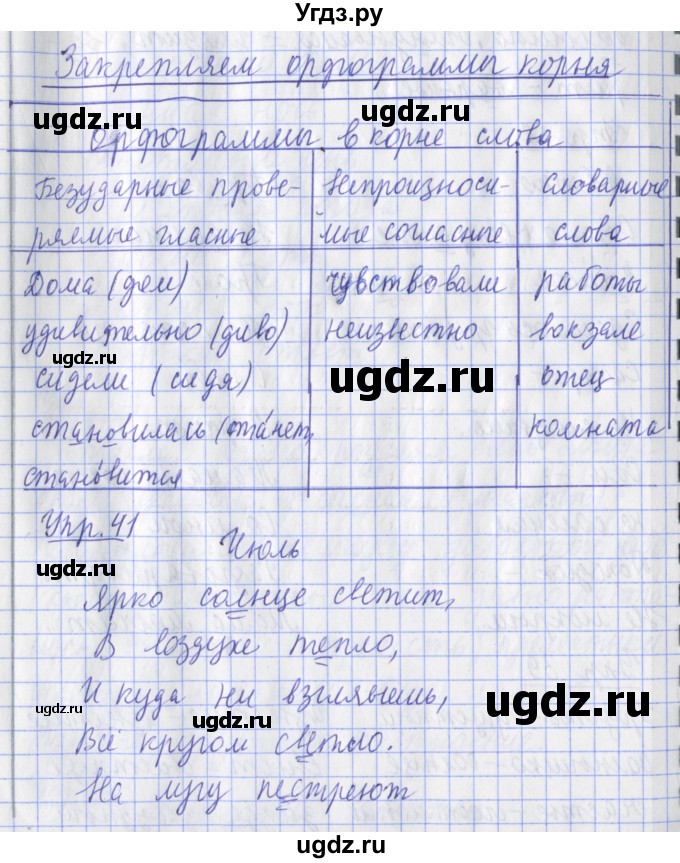 Угдз.ру
Закрепляем орфограммы корня
Орфограммы в корне слова
Безударные прове- Непроизноси- Словарные
ряемые гласные мые согласные слова
Дома (дом) чувствовали работы
удивительно (диво) неизвестно вокзале
сидели (сидя) отец
становилась (станет, комната
становится
Упр. 41
Июль
Ярко солнце светит,
В воздухе тепло,
И куда ни взглянешь,
Всё кругом светло.
На лугу пестреют
ugdz.ru
ugdz.ru
ugdz.ru
ugdz.ru
ugdz.ru
ugdz.ru
ugdz.ru
ugdz.ru
ugdz.ru
ugdz.ru
ugdz.ru
ugdz.ru